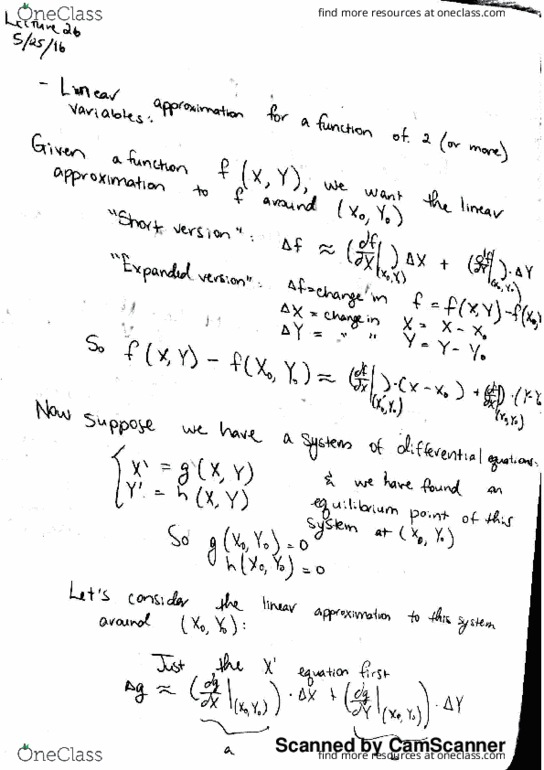 OneClass
find more resources at oneclass.com
Lecture 26
5/25/16
- Linear approximation for a function of 2 (or more)
variables:
Given a function f(X, Y), we want the linear
approximation to f around (X₀, Y₀)
"Short version": Δf ≈ (∂f/∂X|(X₀,Y₀)) ΔX + (∂f/∂Y|(X₀,Y₀)) · ΔY
"Expanded version": Δf = change in f = f(X,Y) - f(X₀,
ΔX = change in X = X - X₀
ΔY = " " Y = Y - Y₀
So f(X,Y) - f(X₀, Y₀) ≈ (∂f/∂X|(X₀,Y₀)) · (X - X₀) + (∂f/∂Y|(X₀,Y₀)) · (Y-Y₀
Now suppose we have a system of differential equations:
{ X' = g(X, Y)
Y' = h(X, Y)
& we have found an
equilibrium point of this
system at (X₀, Y₀)
So g(X₀, Y₀) = 0
h(X₀, Y₀) = 0
Let's consider the linear approximation to this system
around (X₀, Y₀):
Just the X' equation first
Δg ≈ (∂g/∂X|(X₀,Y₀)) · ΔX + (∂g/∂Y|(X₀,Y₀)) · ΔY
a
Scanned by CamScanner
OneClass
find more resources at oneclass.com